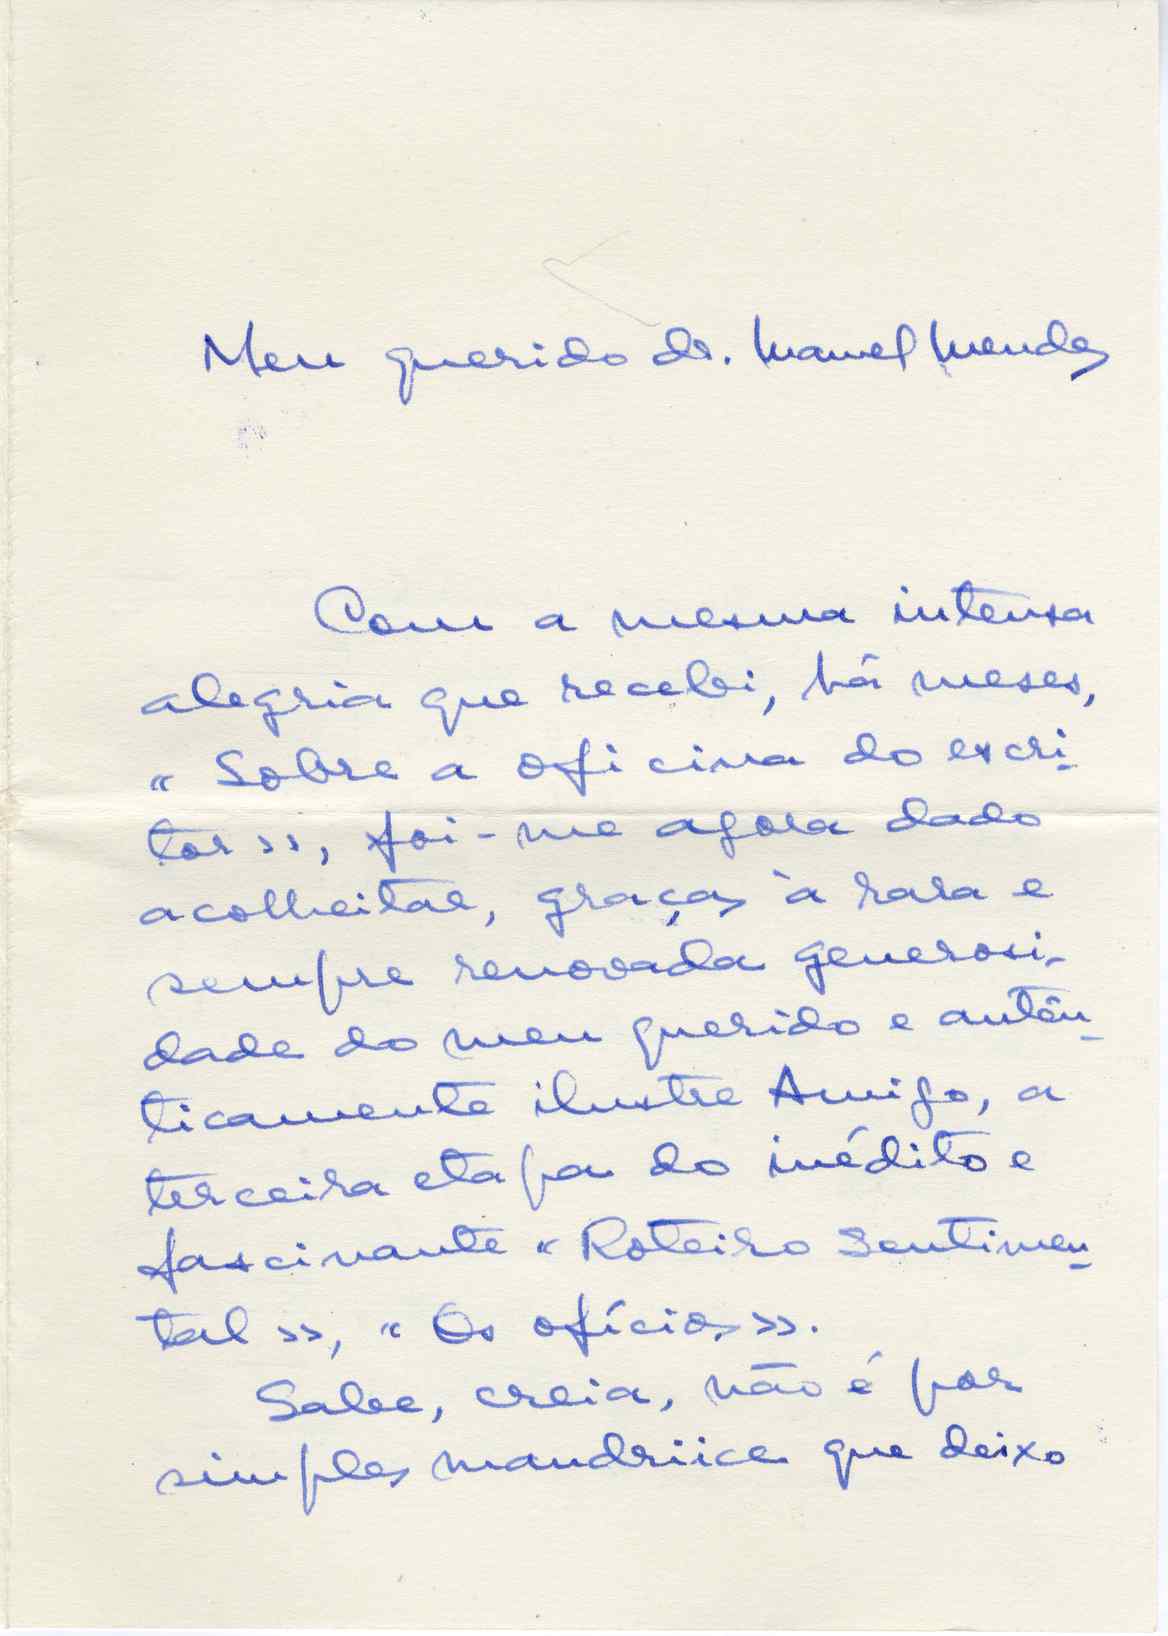 Meu querido dr. Manuel Mendes
Com a mesma intensa
alegria que recebi, há meses,
« Sobre a oficina do escri-
tor », foi-me agora dado
acolheitar, graças à rara e
sempre renovada generosi-
dade do meu querido e autên-
ticamente ilustre Amigo, a
terceira etapa do inédito e
fascinante « Roteiro Sentimen-
tal », « Os ofícios ».
Sabe, creia, não é por
simples mandriice que deixo